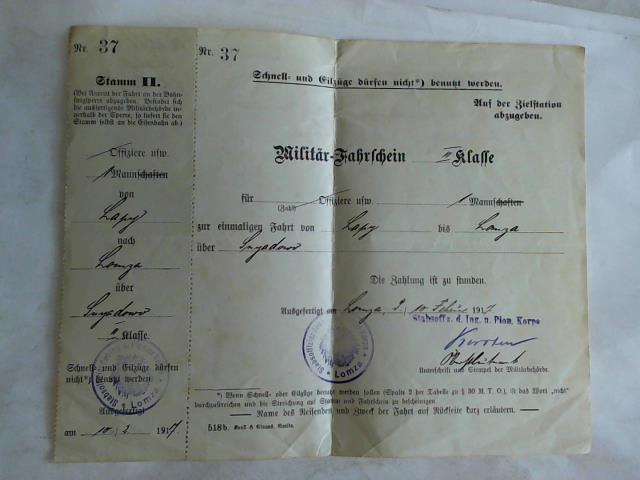 Nr. 37
Stamm II.
(Bei Antritt der Fahrt an der Bahn-
steigsperre abzugeben. Befindet sich
die ausfertigende Militärbehörde in-
nerhalb der Sperre, so liefert sie den
Stamm selbst an die Eisenbahn ab.)
Offiziere usw.
1 Mannschaften
von
Lapy
nach
Lomza
über
Sniadowo
II Klasse.
Schnell- und Eilzüge dürfen
nicht*) benutzt werden.
Ausgefertigt
am 10. 2. 1917
Nr. 37
Schnell- und Eilzüge dürfen nicht*) benutzt werden.
Auf der Zielstation
abzugeben.
Militär-Fahrschein II Klasse
für Offiziere usw. 1 Mannschaften
(Zahl)
zur einmaligen Fahrt von Lapy bis Lomza
über Sniadowo
Die Zahlung ist zu stunden.
Ausgefertigt am Lomza, 10 1917
Stabsoffz. d. Ing. u. Pion. Korps
Lomza
Unterschrift und Stempel der Militärbehörde.
*) Wenn Schnell- oder Eilzüge benutzt werden sollen (Spalte 2 der Tabelle zu § 30 M. T. O.), ist das Wort „nicht"
durchzustreichen und die Streichung auf Stamm und Fahrschein zu bescheinigen.
— Name des Reisenden und Zweck der Fahrt auf Rückseite kurz erläutern. —
518b.